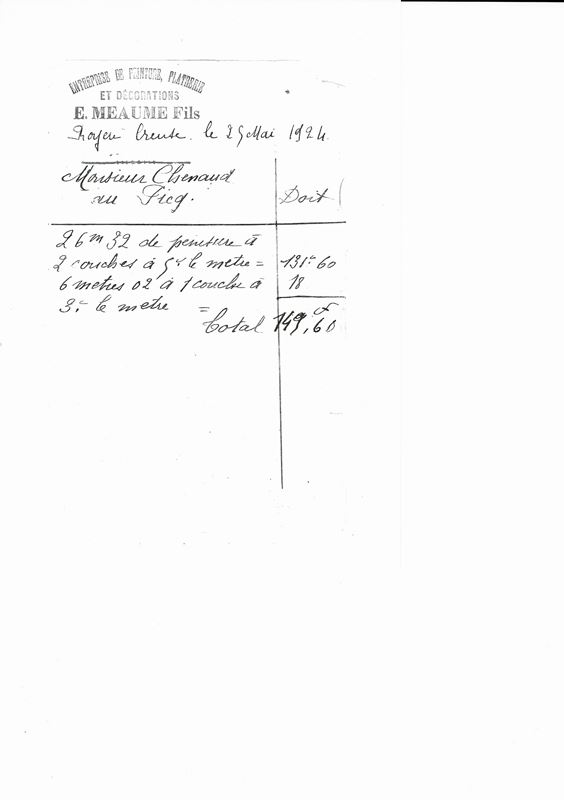 ENTREPRISE DE PEINTURE, PLATRERIE
ET DÉCORATIONS
E. MEAUME Fils
Creuse. le 25 Mai 1924.
Monsieur Chenaud
au Ficq.
Doit
26m32 de peinture à
2 couches à 5f le metre = 131f60
6 metres 02 à 1 couche à 18
3f le metre =
Total 149f,60